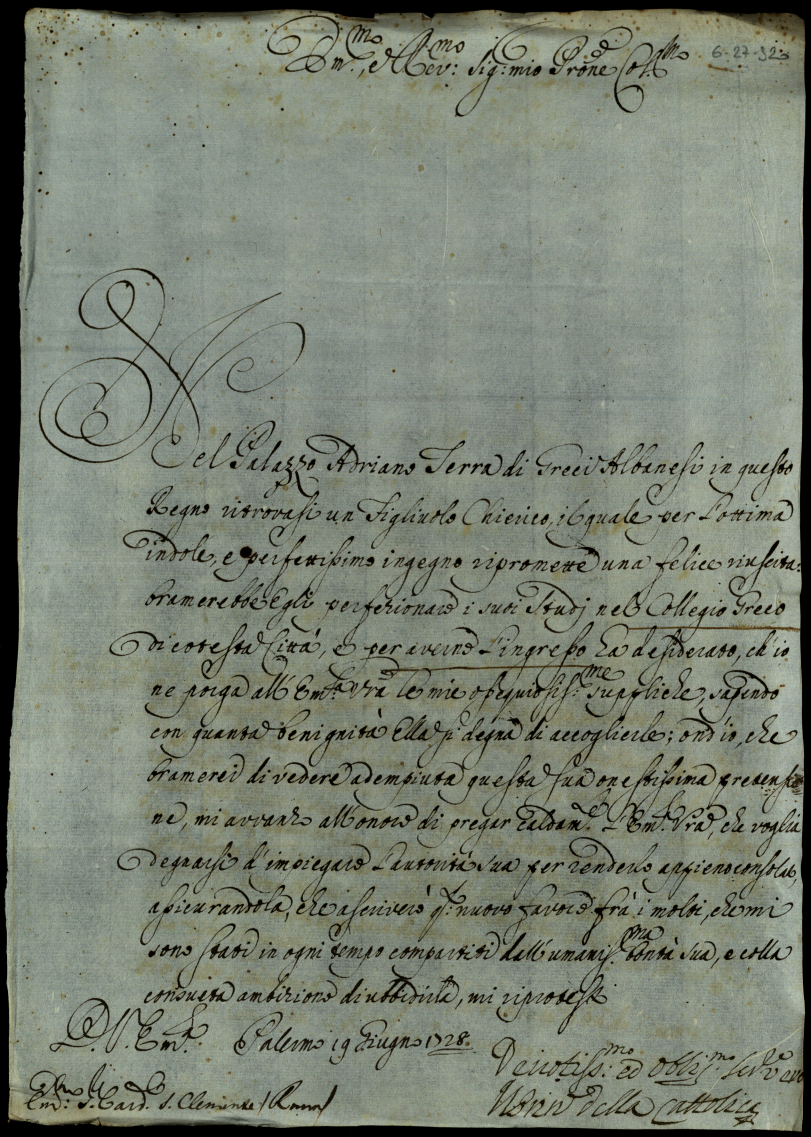 Em.mo, e Rev: Sig: mio P'rone Col.mo
6-27-32
Nel Palazzo Adriano Terra di Greci Albanesi in questo
Regno ritrovasi un Figliuolo Chierico, il quale per l'ottima
indole, e perfettissimo ingegno ripromette una felice riuscita:
bramerebbe Egli perfezionare i suoi Studj nel Collegio Greco
di cotesta Città, e per averne l'ingresso ha desiderato, ch'io
ne porga all'Em.za Vra le mie ossequiosiss:me suppliche, sapendo
con quanta benignità Ella si degna di accoglierle; ond'io, che
bramerei di vedere adempiuta questa sua onestissima pretensio
ne, mi avvanzo all'onore di pregar caldam.te l'Em.za Vra, che voglia
degnarsi d'impiegare l'autorità sua per renderlo appieno consolato,
assicurandola, che ascriverò q.to nuovo favore frà i molti, che mi
sono stati in ogni tempo compartiti dall'umanis:ma bontà sua, e colla
consueta ambizione di ubbidirla, mi riprotesto
D. V. Em.za Palermo 19 Giugno 1728.
Devotiss:mo ed Obblig.mo Serv.e
Em:mo S. Card. S. Clemente / Roma /
della Cattolica